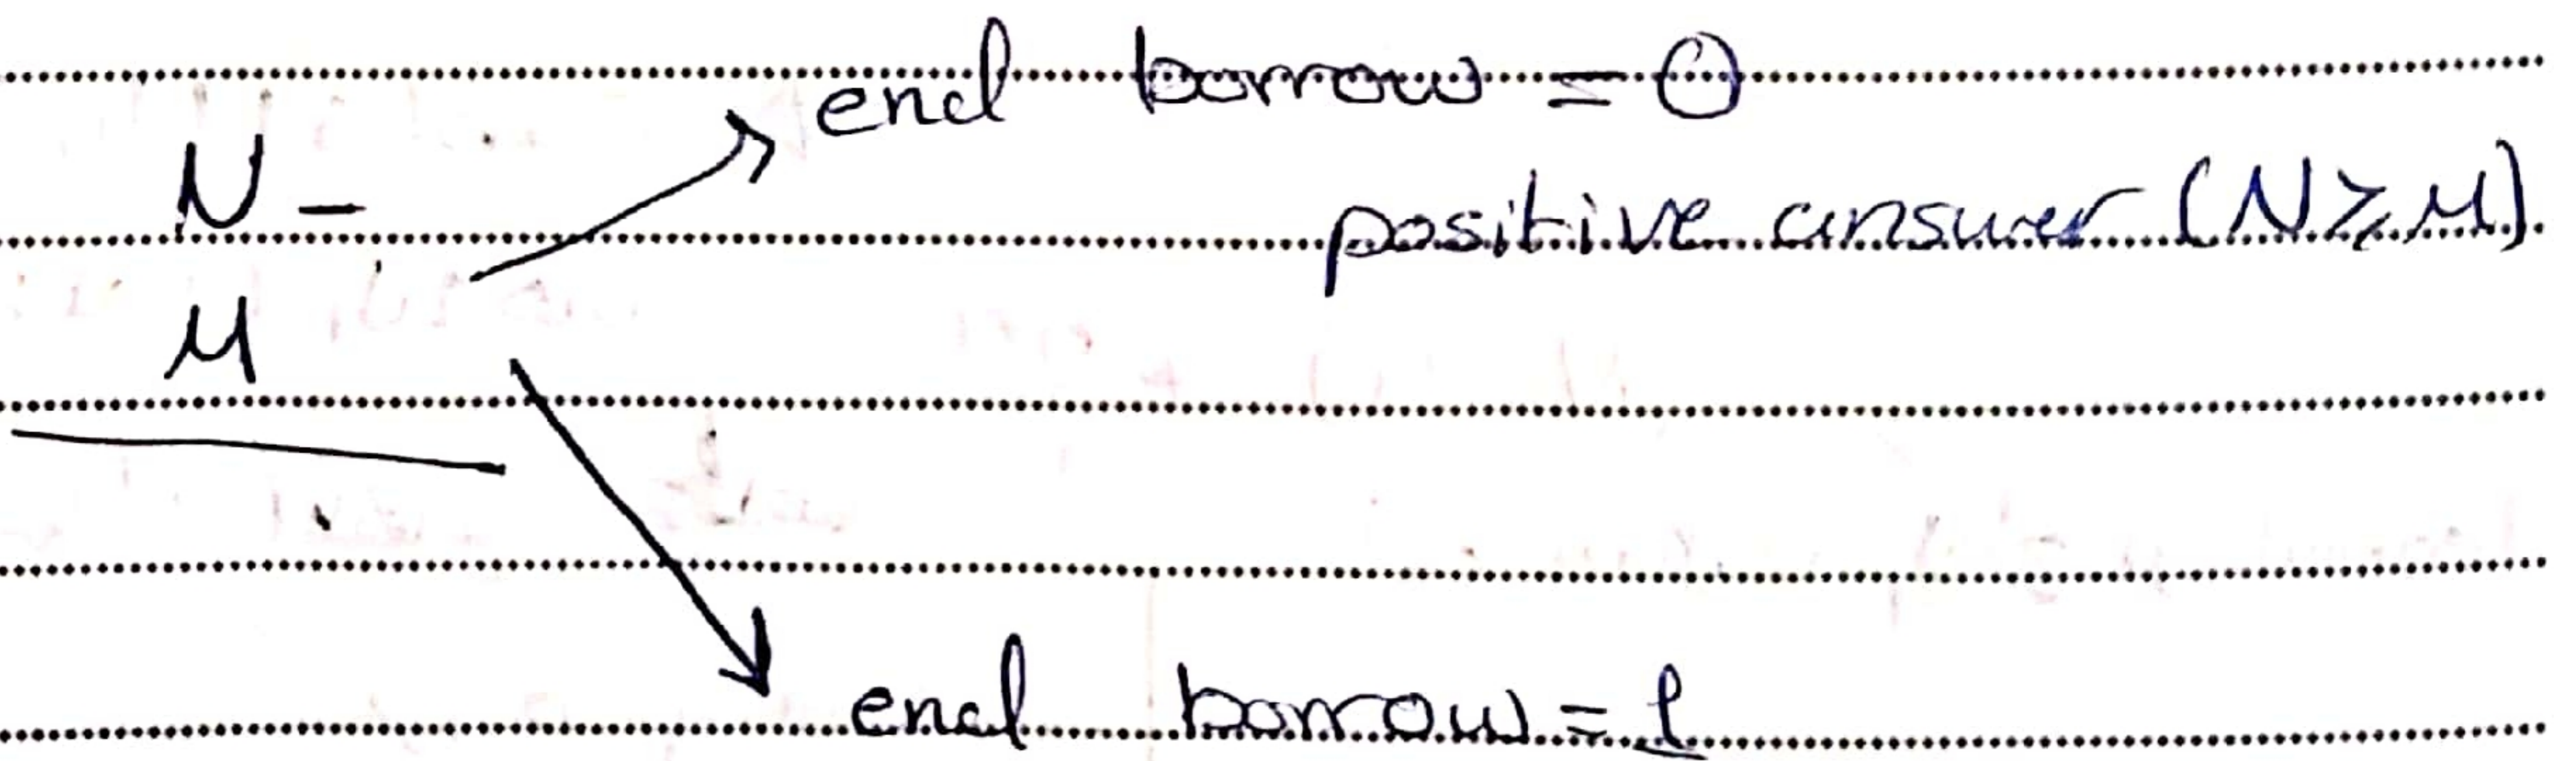 end borrow = 0
N -
positive answer (N ≥ M)
M
end borrow = 1